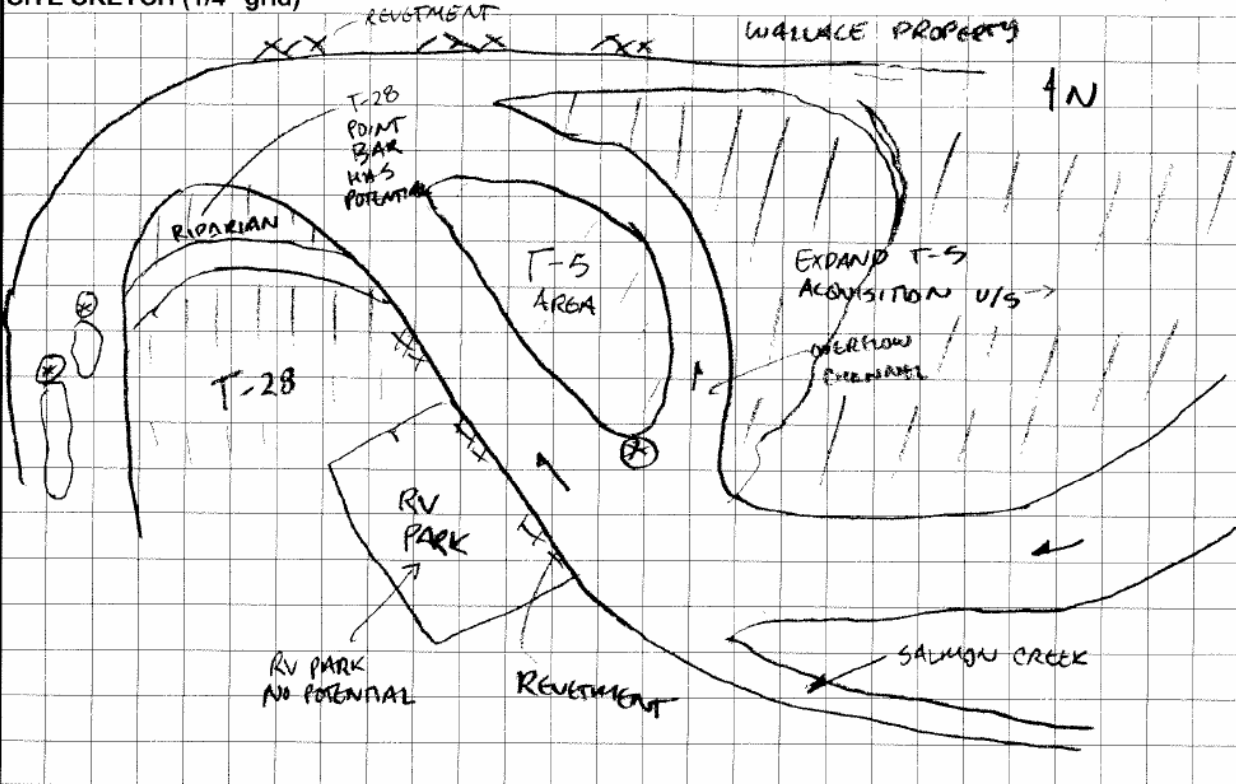 SITE SKETCH (1/4" grid)
REVETMENT
WALLACE PROPERTY
N
T-28
POINT
BAR
HAS
POTENTIAL
RIPARIAN
T-5
AREA
EXPAND T-5
ACQUISITION U/S →
OVERFLOW
CHANNEL
T-28
RV
PARK
RV PARK
NO POTENTIAL
REVETMENT
SALMON CREEK